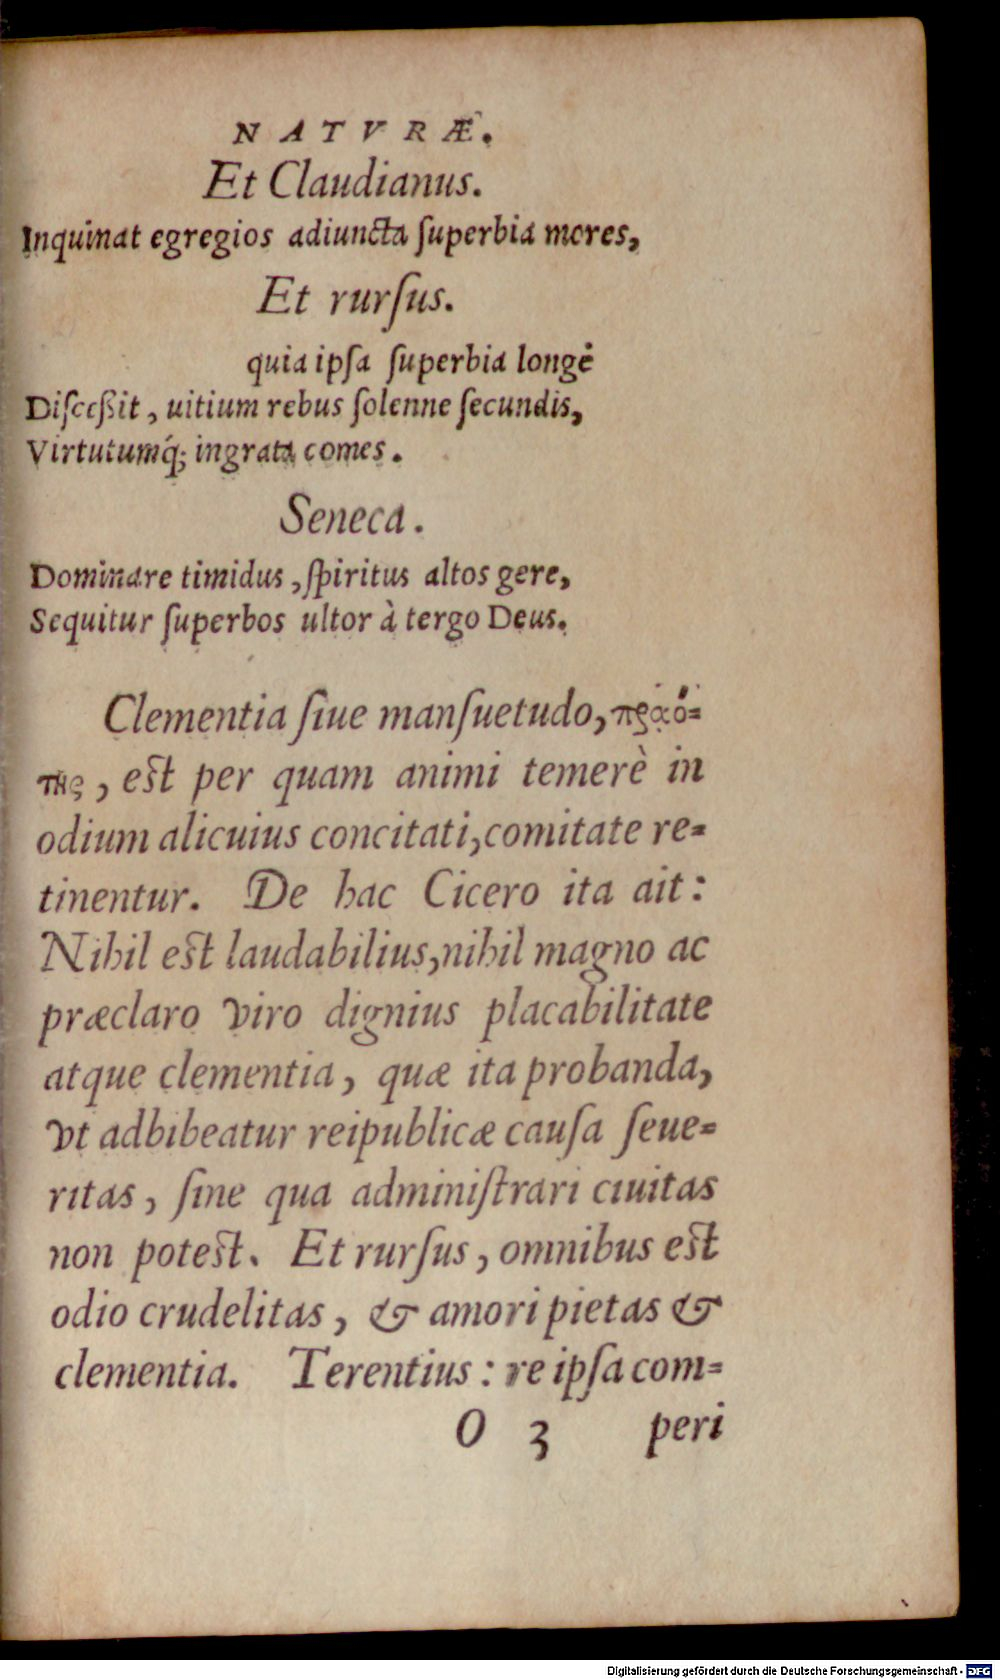 NATVRÆ.
Et Claudianus.
Inquinat egregios adiuncta ſuperbia mores,
Et rurſus.
quia ipſa ſuperbia longè
Diſceßit, uitium rebus ſolenne ſecundis,
Virtutumq́; ingrata comes.
Seneca.
Dominare timidus, ſpiritus altos gere,
Sequitur ſuperbos ultor à tergo Deus.
Clementia ſiue manſuetudo, πραό=
της, eſt per quam animi temerè in
odium alicuius concitati, comitate re=
tinentur. De hac Cicero ita ait:
Nihil eſt laudabilius, nihil magno ac
præclaro viro dignius placabilitate
atque clementia, quæ ita probanda,
vt adhibeatur reipublicæ cauſa ſeue=
ritas, ſine qua adminiſtrari ciuitas
non poteſt. Et rurſus, omnibus eſt
odio crudelitas, & amori pietas &
clementia. Terentius: re ipſa com=
O 3 peri
Digitalisierung gefördert durch die Deutsche Forschungsgemeinschaft - DFG